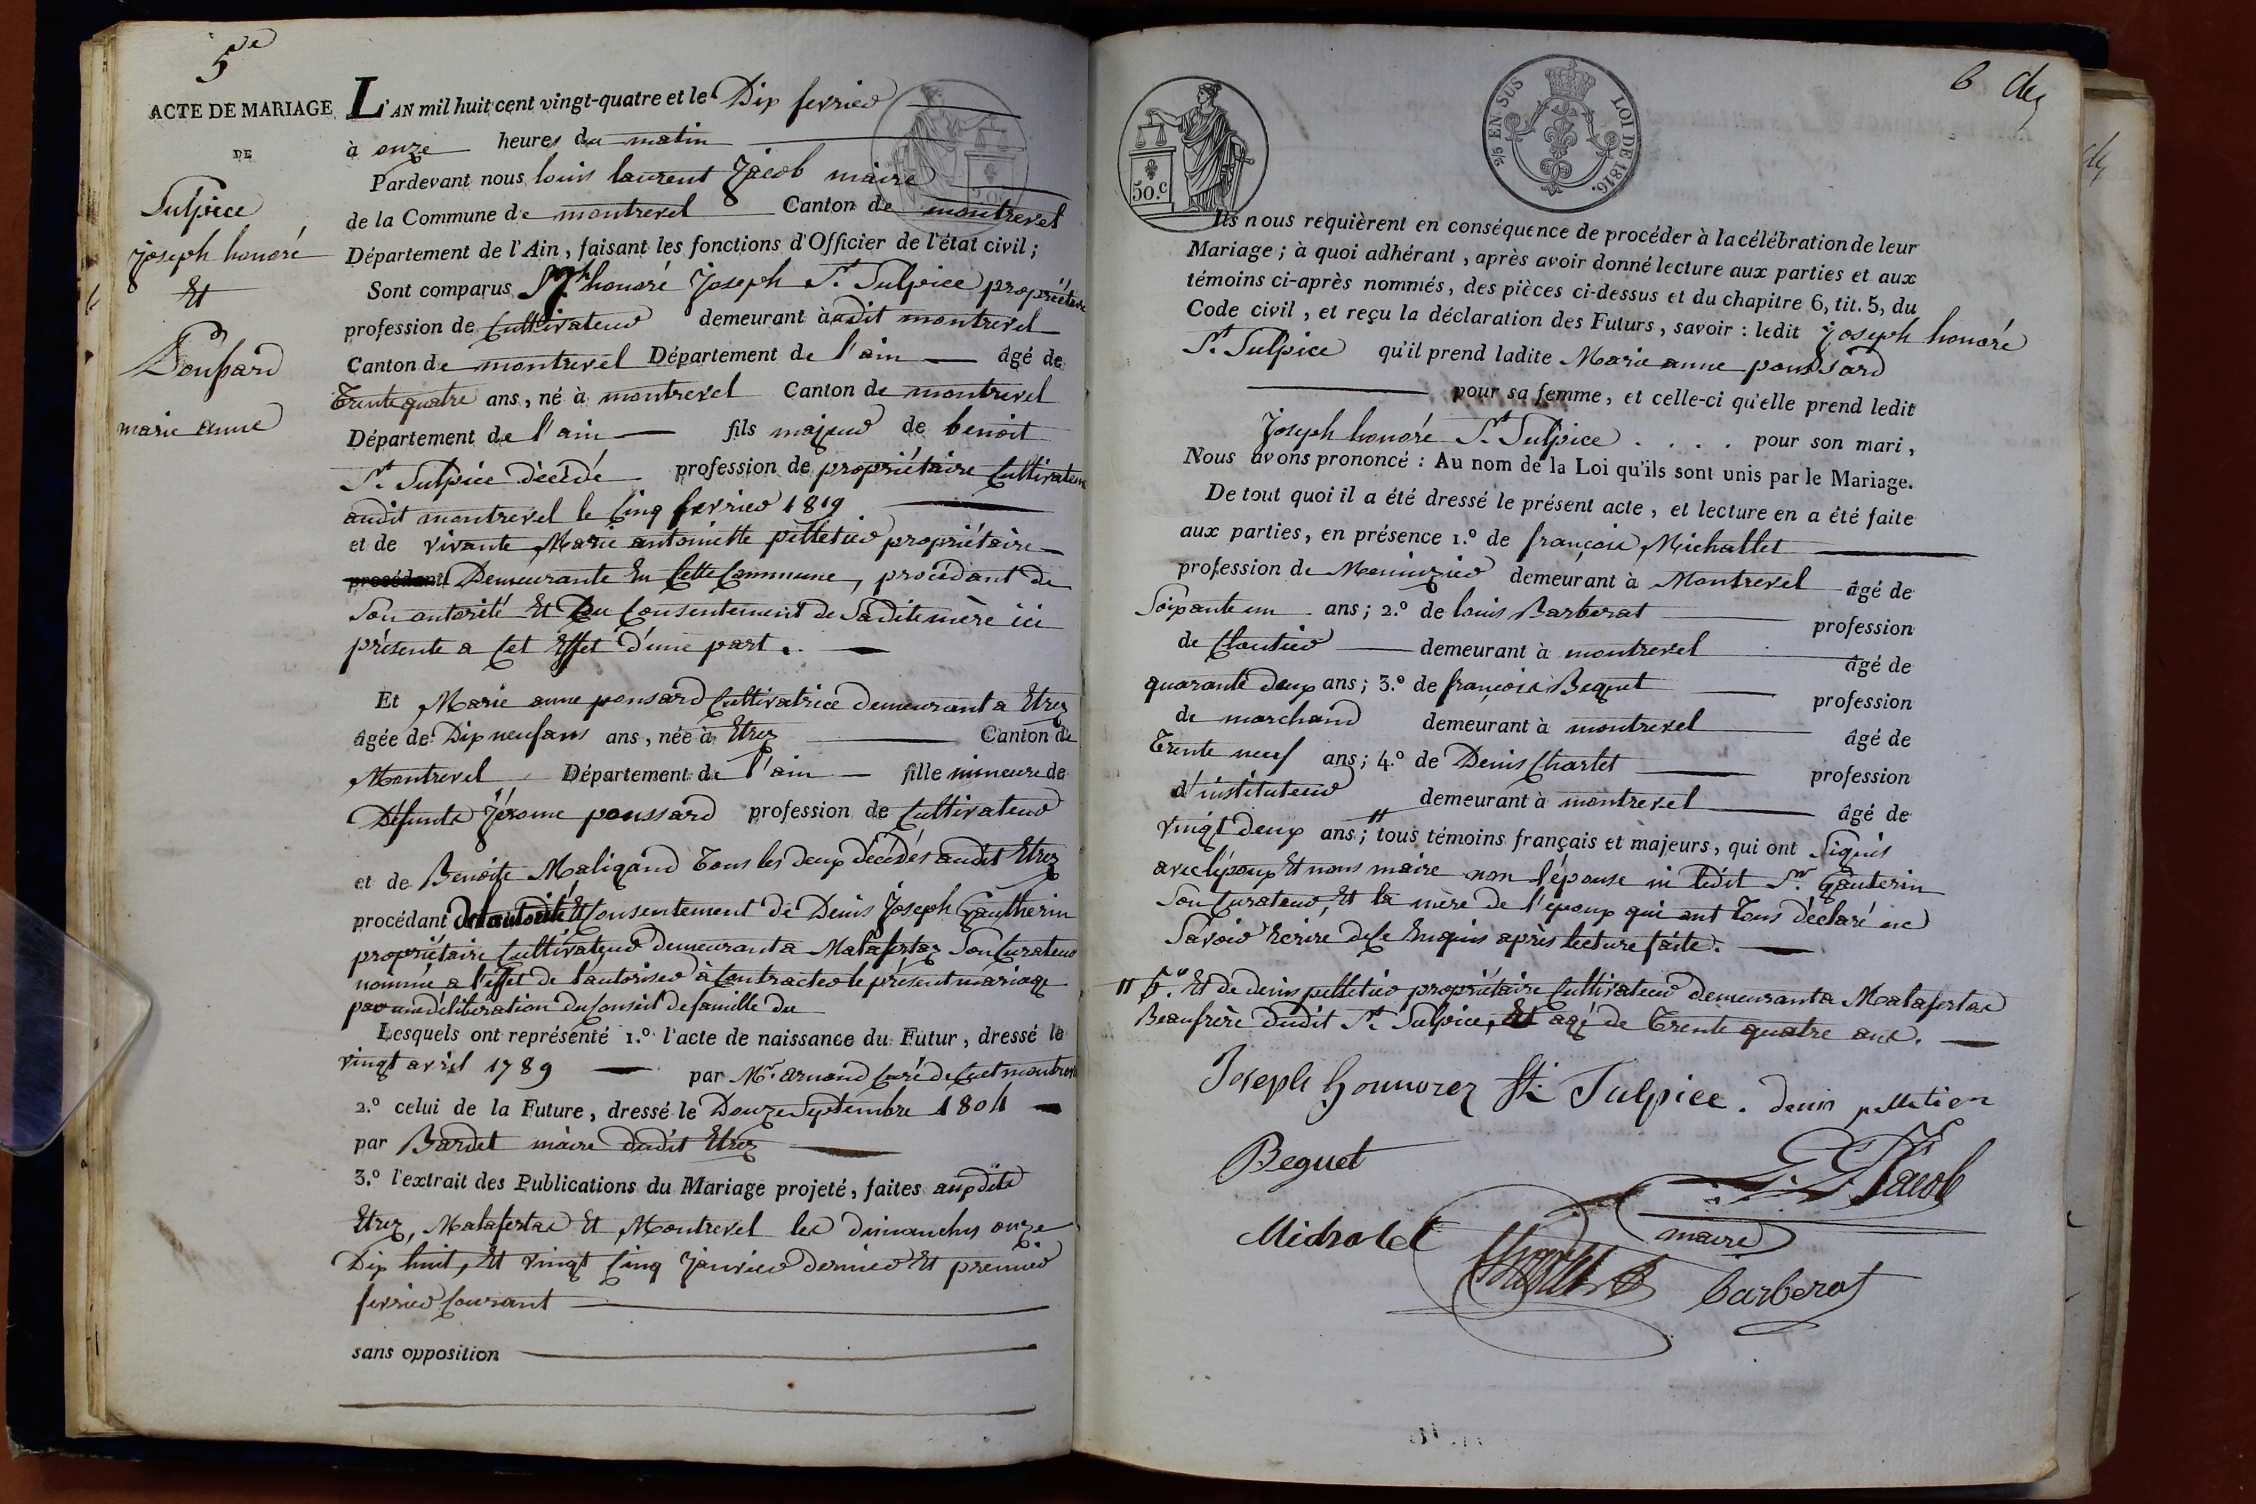 5e
ACTE DE MARIAGE
DE
Sulpice
joseph honoré
Et
Ponsard
marie anne
L'AN mil huit cent vingt-quatre et le Dix fevrier
à onze heures du matin
Pardevant nous louis laurent Jacob maire
de la Commune de montrevel Canton de montrevel
Département de l'Ain, faisant les fonctions d'Officier de l'état civil;
Sont comparus honoré Joseph St. Sulpice propriétaire
profession de Cultivateur demeurant à audit montrevel
Canton de montrevel Département de l'ain âgé de
Trente quatre ans, né à montrevel Canton de montrevel
Département de l'ain fils majeur de benoit
St. Sulpice décédé profession de propriétaire Cultivateur
audit montrevel le Cinq fevrier 1819
et de vivante Marie antoinette pelletier propriétaire
procédant Demeurante En Cette Commune, procédant de
Son autorité Et Du Consentement de Sadite mère ici
présente a Cet Effet d'une part.
Et Marie anne ponsard Cultivatrice demeurant a Etrez
âgée de Dix neuf ans ans, née à Etrez Canton de
Montrevel Département de l'ain fille mineure de
Défunts Jérome poussard profession de Cultivateur
et de Benoite Maligand Tous les deux décédés audit Etrez
procédant de l'autorité Et Consentement de Denis Joseph Gautherin
propriétaire Cultivateur demeurant a Malafertaz Son Curateur
nommé a l'effet de l'autoriser à Contracter le présent mariage
par une déliberation du Conseil de famille du
Lesquels ont représenté 1.º l'acte de naissance du Futur, dressé le
vingt avril 1789 par Mr. arnaud Curé de Cuet montrevel
2.º celui de la Future, dressé le Douze Septembre 1804
par Bardet maire dudit Etrez
3.º l'extrait des Publications du Mariage projeté, faites auxdits
Etrez, Malafertaz Et Montrevel les dimanches onze
Dix huit, Et vingt Cinq Janvier dernier Et premier
fevrier Courant
sans opposition
6 
50.c
25 EN SUS LOI DE 1816.
Ils nous requièrent en conséquence de procéder à la célébration de leur
Mariage; à quoi adhérant, après avoir donné lecture aux parties et aux
témoins ci-après nommés, des pièces ci-dessus et du chapitre 6, tit. 5, du
Code civil, et reçu la déclaration des Futurs, savoir: ledit Joseph honoré
St Sulpice qu'il prend ladite Marie anne ponssard
pour sa femme, et celle-ci qu'elle prend ledit
Joseph honoré St Sulpice . . . . pour son mari,
Nous avons prononcé: Au nom de la Loi qu'ils sont unis par le Mariage.
De tout quoi il a été dressé le présent acte, et lecture en a été faite
aux parties, en présence 1.º de françois Michallet
profession de Menuizier demeurant à Montrevel âgé de
Soixante un ans; 2.º de louis Barberat profession
de Cloutier demeurant à montrevel âgé de
quarante deux ans; 3.º de françois Beguet profession
de marchand demeurant à montrevel âgé de
Trente neuf ans; 4.º de Denis Charlet profession
d'instituteur demeurant à montrevel âgé de
vingt deux ans; tous témoins français et majeurs, qui ont Signés
avec l'époux Et nous maire non l'épouse ni ledit Sr. Gauterin
Son Curateur, Et la mère de l'époux qui ont Tous déclaré ne
Savoir Ecrire de Ce Enquis après lecture faite.
5º. Et de denis pelletier propriétaire Cultivateur demeurant a Malafertaz
Beaufrère dudit St Sulpice, Et agé de Trente quatre ans.
Joseph honnorez St Sulpice. denis pelletier
Beguet
L. L. Jacob
maire
Michalet
Charlet
barberat